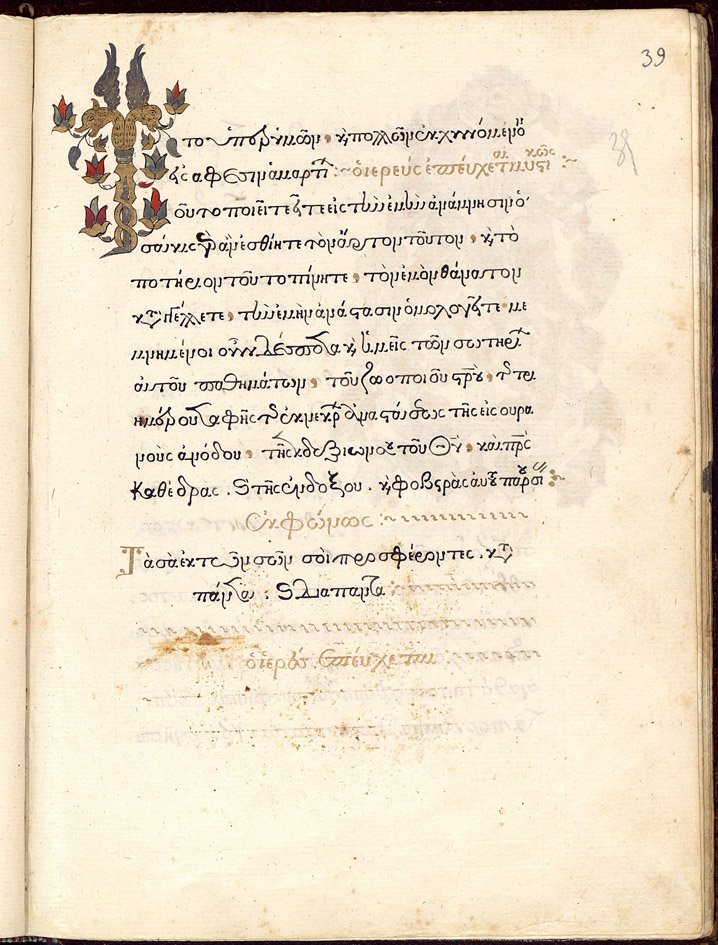 39
το ὑπὲρ ὑμῶν, καὶ πολλῶν ἐκχυνόμενον
εἰς ἄφεσιν ἁμαρτι :~ ὁ ἱερεὺς ἐπεύχεται μυστικῶς :~
οὗτο ποιεῖτε εἰς τὴν ἐμὴν ἀνάμνησιν ὁ
σάκις γὰρ ἂν ἐσθίητε τὸν ἄρτον τοῦτον, καὶ τὸ
ποτήριον τοῦτο πίνητε, τὸν ἐμὸν θάνατον
καταγγέλλετε, τὴν ἐμὴν ἀνάστασιν ὁμολογεῖτε· με
μνημένοι οὖν δέσποτα καὶ ἡμεῖς τῶν σωτηρίων
αὐτοῦ παθημάτων, τοῦ ζωοποιοῦ σταυροῦ, τῆς τρι
ημέρου ταφῆς τῆς ἐκ νεκρῶν ἀναστάσεως τῆς εἰς οὐρα
νοὺς ἀνόδου, τῆς ἐκ δεξιῶν σου τοῦ Θεοῦ, καὶ πατρὸς
καθέδρας. καὶ τῆς ἐνδόξου. καὶ φοβερᾶς αὐτοῦ παρουσίας :~
Ἐκφώνως :~
Τὰ σὰ ἐκ τῶν σῶν σοὶ προσφέρομτες. κατὰ
πάντα, καὶ διὰ πάντα
ὁ ἱερεὺς ἐπεύχεται :